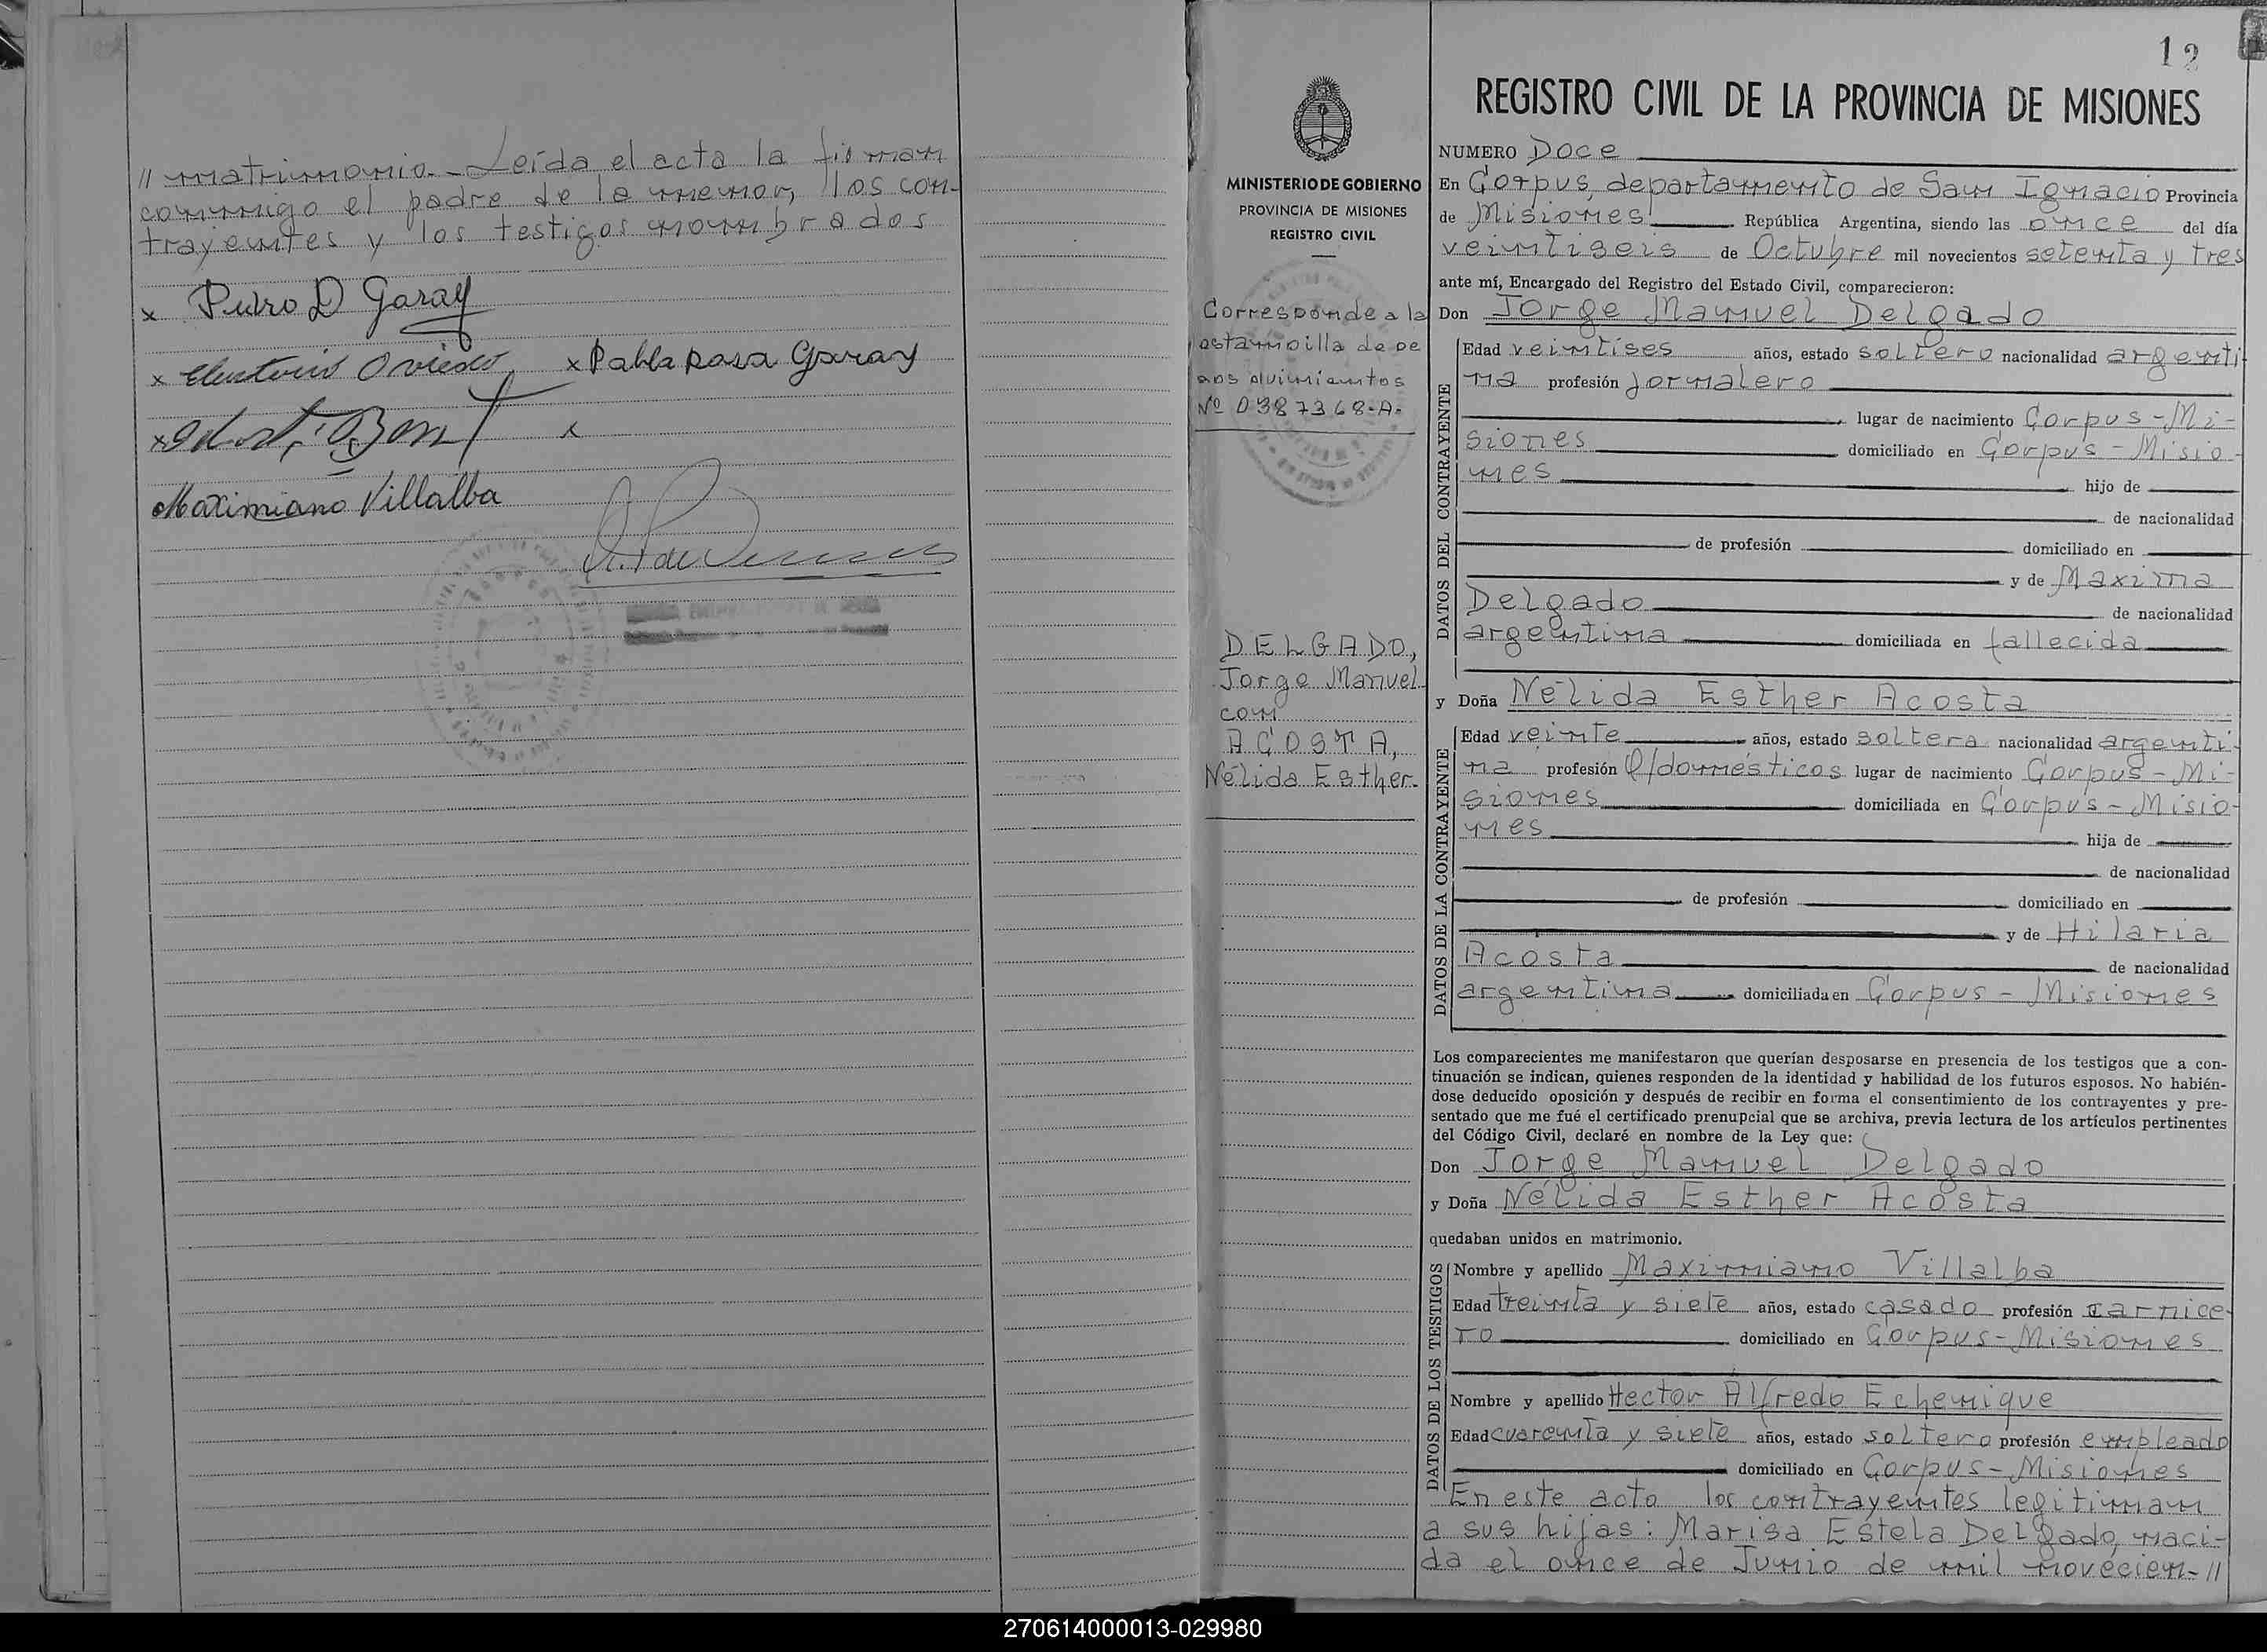 // matrimonio.- Leída el acta la firman
conmigo el padre de la menor, los con-
trayentes y los testigos nombrados
x Pedro D Garay
x Oviedo x Pabla Rosa Garay
x x
Maximiano Villalba
12
REGISTRO CIVIL DE LA PROVINCIA DE MISIONES
MINISTERIO DE GOBIERNO
PROVINCIA DE MISIONES
REGISTRO CIVIL
Corresponde a la
estampilla de pe
Nº 0387368-A-
DELGADO,
Jorge Manuel
con
ACOSTA,
Nélida Esther.
NUMERO Doce
En Corpus, departamento de San Ignacio Provincia
de Misiones República Argentina, siendo las once del día
veintiseis de Octubre mil novecientos setenta y tres
ante mí, Encargado del Registro del Estado Civil, comparecieron:
Don Jorge Manuel Delgado
DATOS DEL CONTRAYENTE
Edad veintises años, estado soltero nacionalidad argenti
na profesión jornalero
lugar de nacimiento Corpus-Mi-
siones domiciliado en Corpus-Misio-
nes hijo de
de nacionalidad
de profesión domiciliado en
y de Maxima
Delgado de nacionalidad
argentina domiciliada en fallecida
y Doña Nélida Esther Acosta
DATOS DE LA CONTRAYENTE
Edad veinte años, estado soltera nacionalidad argenti-
na profesión Q/domésticos lugar de nacimiento Corpus-Mi-
siones domiciliada en Corpus-Misio-
nes hija de
de nacionalidad
de profesión domiciliado en
y de Hilaria
Acosta de nacionalidad
argentina domiciliada en Corpus-Misiones
Los comparecientes me manifestaron que querían desposarse en presencia de los testigos que a con-
tinuación se indican, quienes responden de la identidad y habilidad de los futuros esposos. No habién-
dose deducido oposición y después de recibir en forma el consentimiento de los contrayentes y pre-
sentado que me fué el certificado prenupcial que se archiva, previa lectura de los artículos pertinentes
del Código Civil, declaré en nombre de la Ley que:
Don Jorge Manuel Delgado
y Doña Nélida Esther Acosta
quedaban unidos en matrimonio.
DATOS DE LOS TESTIGOS
Nombre y apellido Maximiano Villalba
Edad treinta y siete años, estado casado profesión carnice-
ro domiciliado en Corpus-Misiones
Nombre y apellido Hector Alfredo Echenique
Edad cuarenta y siete años, estado soltero profesión empleado
domiciliado en Corpus-Misiones
En este acto los contrayentes legitiman
a sus hijas: Marisa Estela Delgado, naci-
da el once de Junio de mil novecien-//
270614000013-029980